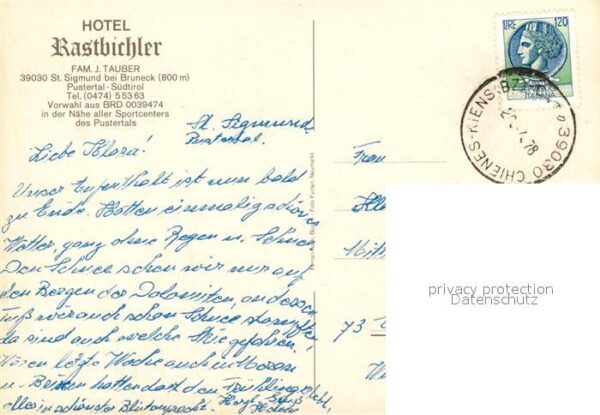 HOTEL
Rastbichler
FAM. J. TAUBER
39030 St. Sigmund bei Bruneck (800 m)
Pustertal - Südtirol
Tel. (0474) 55363
Vorwahl aus BRD 0039474
in der Nähe aller Sportcenters
des Pustertals
LIRE 120
ITALIANA
39030 CHIENES-KIENS BZ
78
St. Sigmund,
Pustertal.
Liebe Klara!
Unser Aufenthalt ist nun bald
zu Ende. Hatten einmalig schönes
Wetter, ganz ohne Regen u. Schnee
Den Schnee sehen wir nur auf
den Bergen der Dolomiten, an deren
Fuß wir auch schon Schnee
da sind auch welche Ski gefahren.
Waren letzte Woche auch in Meran
u. Bozen hatten dort den Frühling erlebt,
alles in schönster Blütenpracht. Herzl. Grüß
Frau
73
privacy protection
Datenschutz